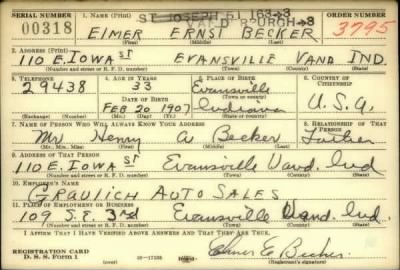 SERIAL NUMBER 1. NAME (Print) ORDER NUMBER
ST JOSEPH 51 163→3
VAND BURGH→3
00318 ELMER ERNST BECKER 3795
(First) (Middle) (Last)
2. ADDRESS (Print)
110 E. IOWA ST EVANSVILLE VAND IND.
(Number and street or R. F. D. number) (Town) (County) (State)
3. TELEPHONE 4. AGE IN YEARS 5. PLACE OF BIRTH 6. COUNTRY OF CITIZENSHIP
29438 33 Evansville
(Town or county)
DATE OF BIRTH
FEB 20 1907 Indiana U.S.A.
(Exchange) (Number) (Mo.) (Day) (Yr.) (State or country)
7. NAME OF PERSON WHO WILL ALWAYS KNOW YOUR ADDRESS 8. RELATIONSHIP OF THAT PERSON
Mr Henry A Becker Father
(Mr., Mrs., Miss) (First) (Middle) (Last)
9. ADDRESS OF THAT PERSON
110 E. Iowa ST Evansville Vand. Ind
(Number and street or R. F. D. number) (Town) (County) (State)
10. EMPLOYER'S NAME
GRAULICH AUTO SALES
11. PLACE OF EMPLOYMENT OR BUSINESS
109 S.E. 3rd Evansville Vand. Ind.
(Number and street or R. F. D. number) (Town) (County) (State)
I AFFIRM THAT I HAVE VERIFIED ABOVE ANSWERS AND THAT THEY ARE TRUE.
REGISTRATION CARD
D. S. S. Form 1 16—17105 Elmer E Becker
(Registrant's signature)